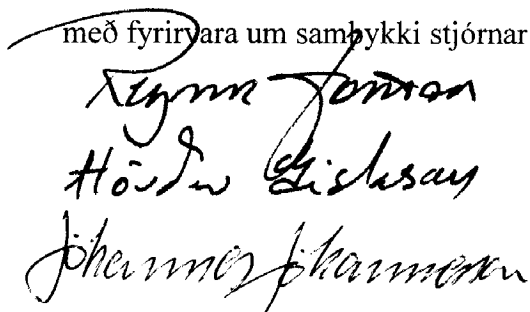 með fyrirvara um samþykki stjórnar
Reynir Jónsson
Hörður Gíslason
Jóhannes Jóhannesson